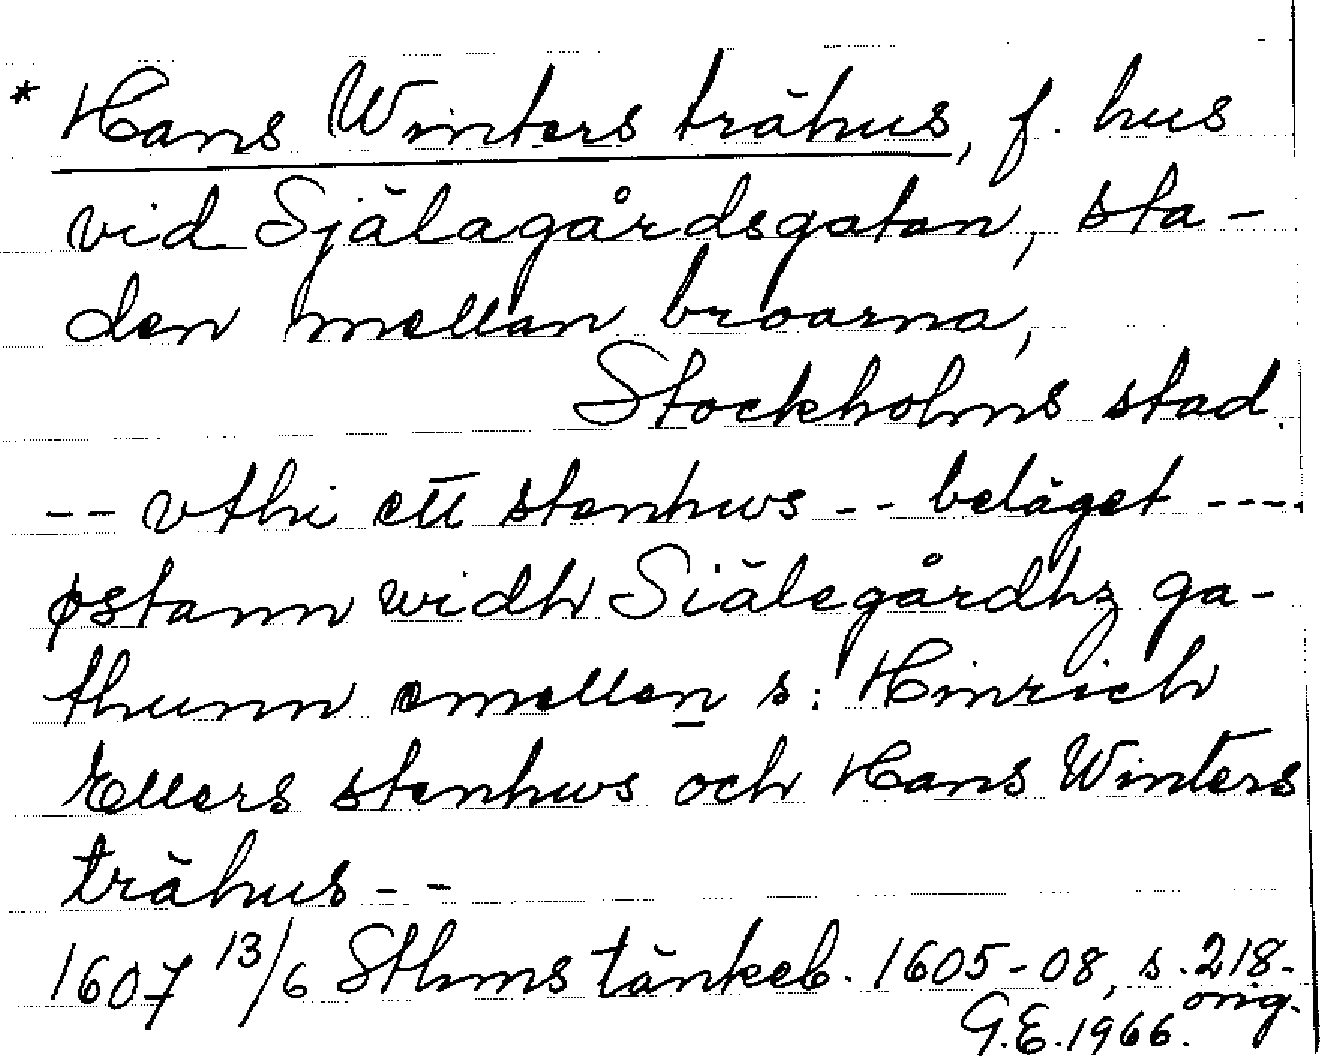 * Hans Winters trähus, f. hus
vid Själagårdsgatan, sta-
den mellan broarna,
Stockholms stad.
-- vthi ett stenhws -- beläget ----
østann widh Siälegårdhz ga-
thunn emellen s: Hinrich
Ellers stenhws och Hans Winters
trähus --
1607 13/6 Sthms tänkeb. 1605-08, s. 218.
orig.
G.E. 1966.